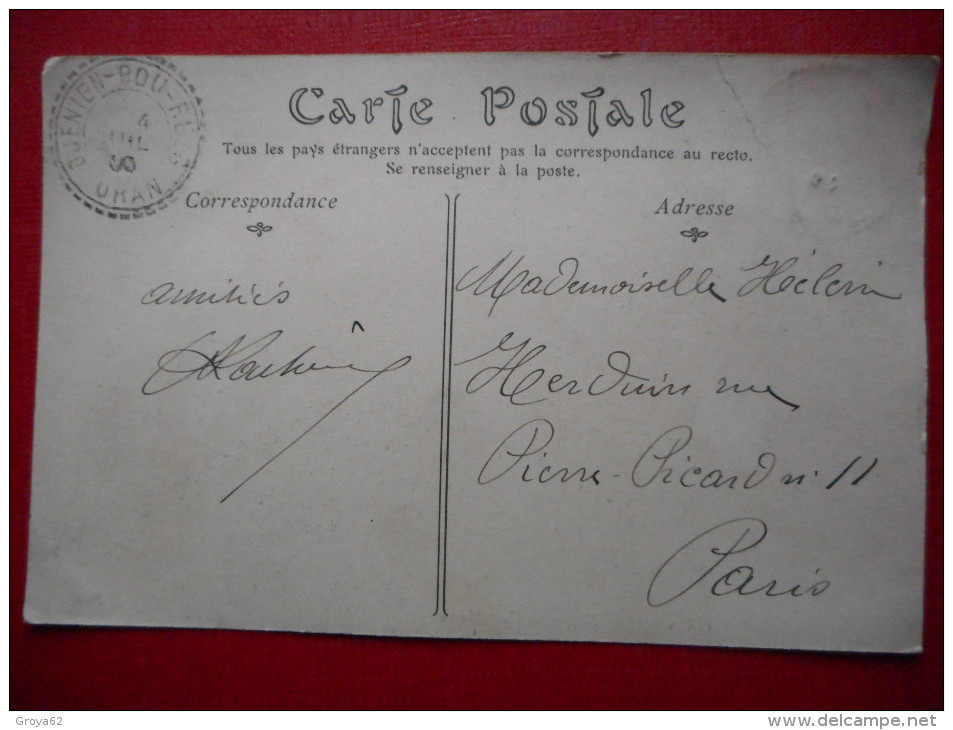 4
JUIL
ORAN
Carte Postale
Tous les pays étrangers n'acceptent pas la correspondance au recto.
Se renseigner à la poste.
Correspondance
amitiés
Adresse
Mademoiselle
Herduin rue
Pierre-Picard n° 11
Paris
Groya62
www.delcampe.net